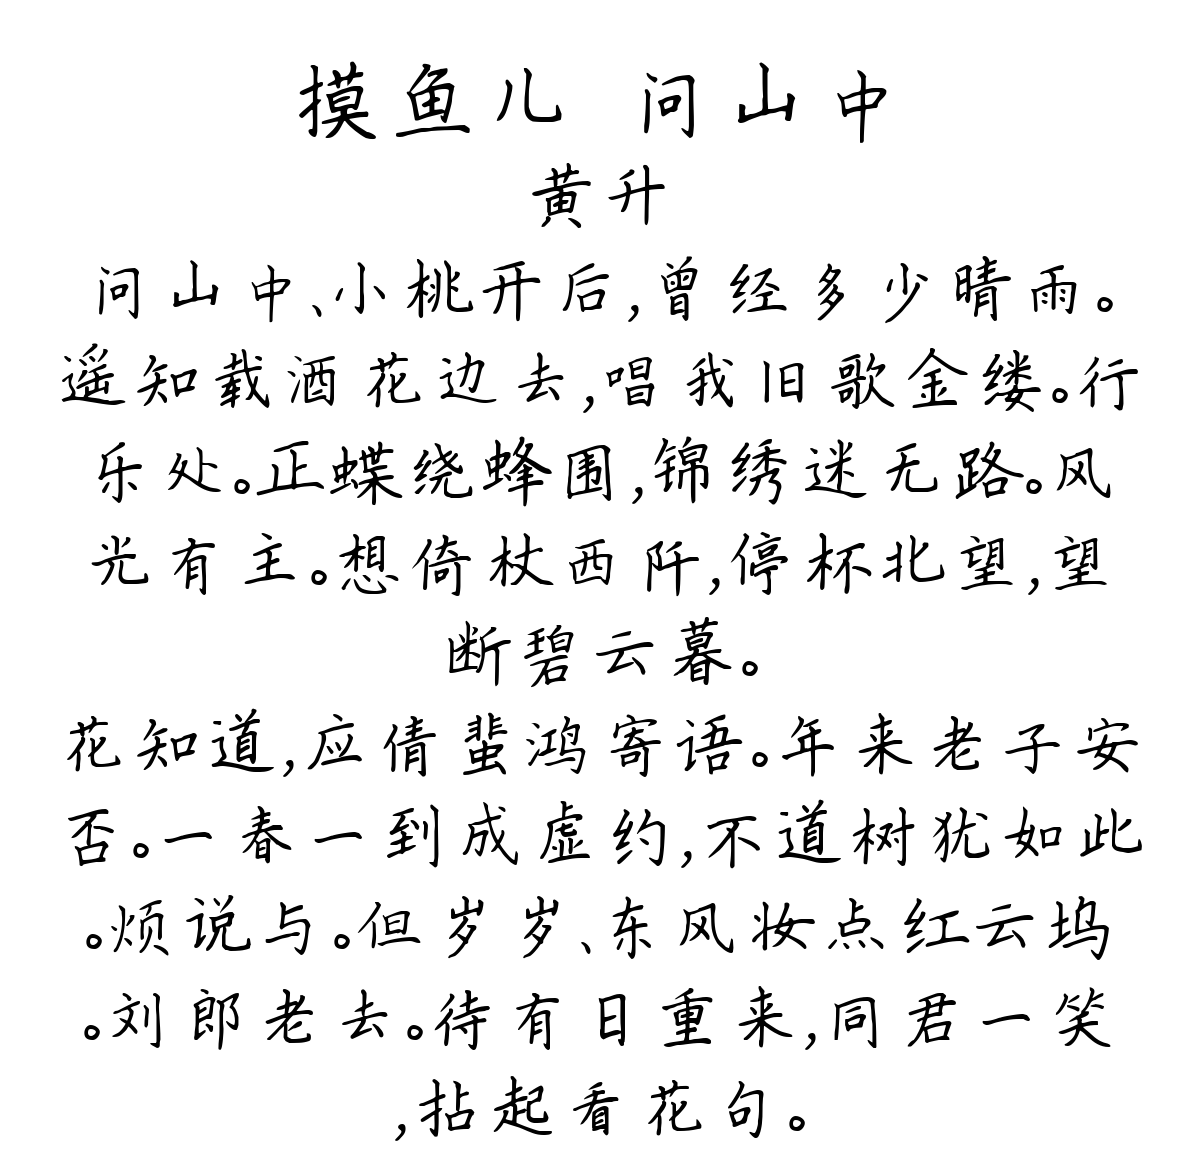 摸鱼儿 问山中
黄升
问山中、小桃开后,曾经多少晴雨。
遥知载酒花边去,唱我旧歌金缕。行
乐处。正蝶绕蜂围,锦绣迷无路。风
光有主。想倚杖西阡,停杯北望,望
断碧云暮。
花知道,应倩蜚鸿寄语。年来老子安
否。一春一到成虚约,不道树犹如此
。烦说与。但岁岁、东风妆点红云坞
。刘郎老去。待有日重来,同君一笑
,拈起看花句。